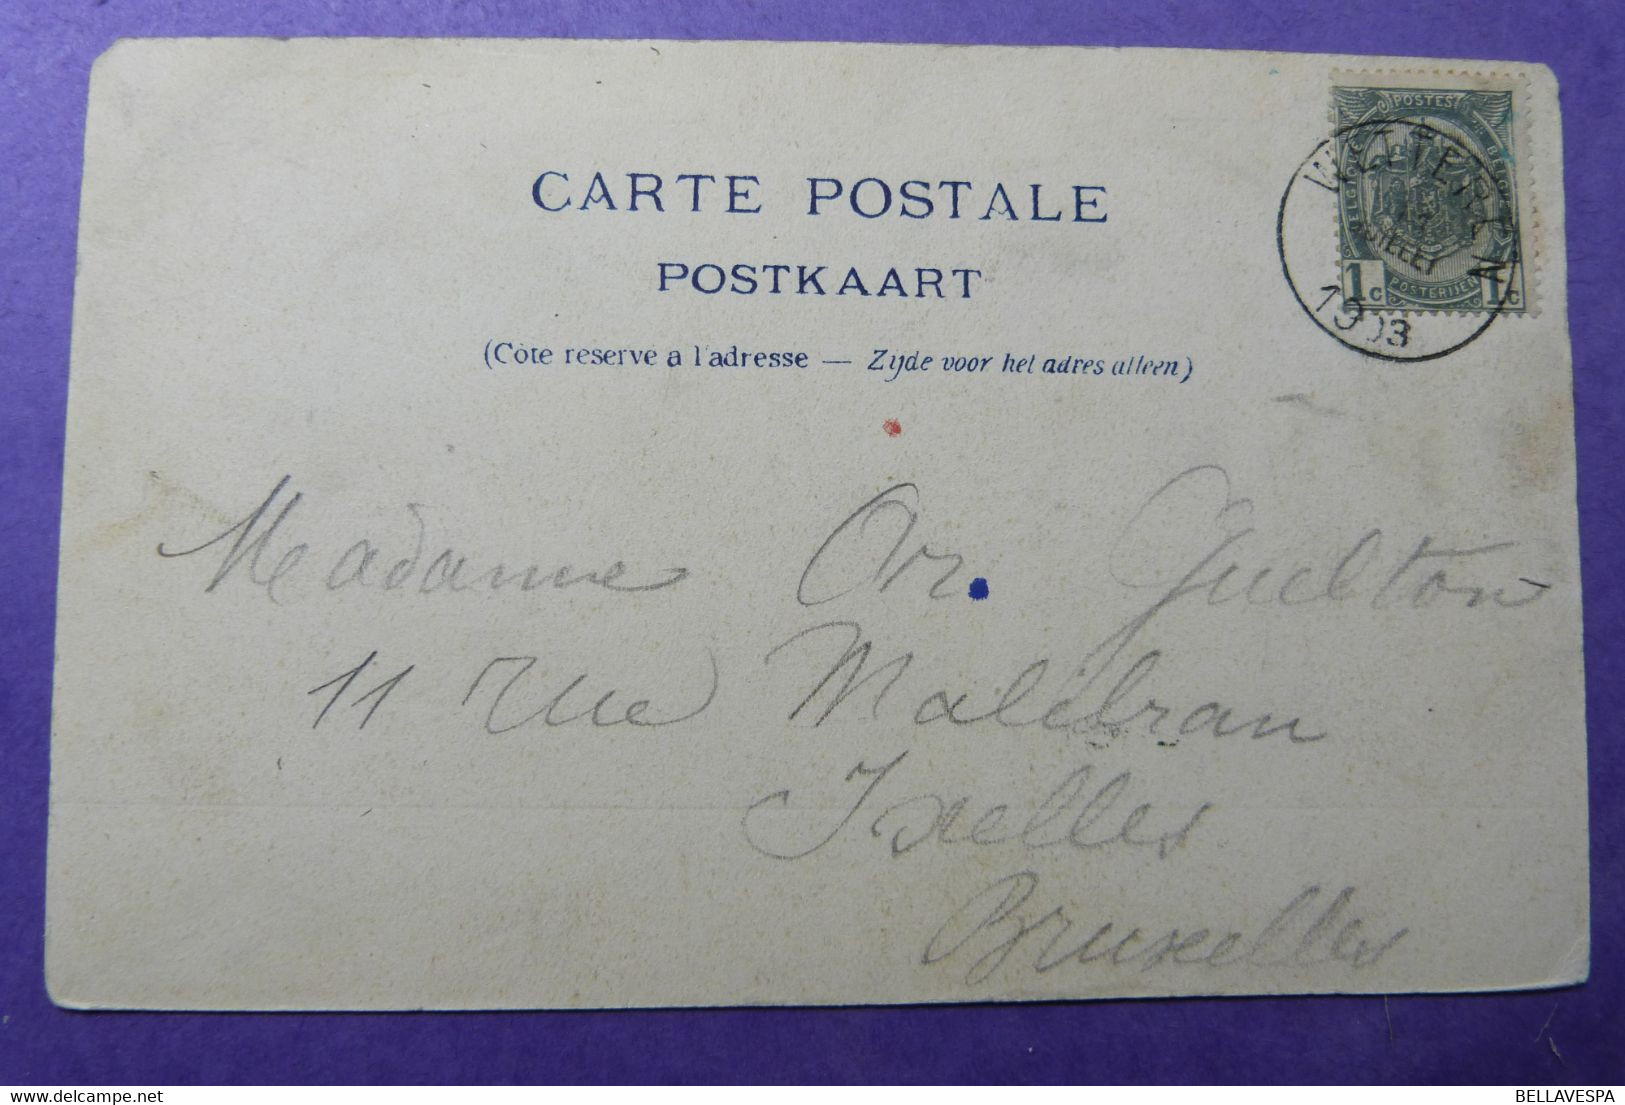 CARTE POSTALE
POSTKAART
(Côte reserve a l'adresse — Zijde voor het adres alleen)
POSTES
BELGIQUE
BELGIË
1c POSTERIJEN 1c
WETTEREN
1903
Madame Or. Guelton
11 Rue Malibran
Ixelles
Bruxelles
BELLAVESPA